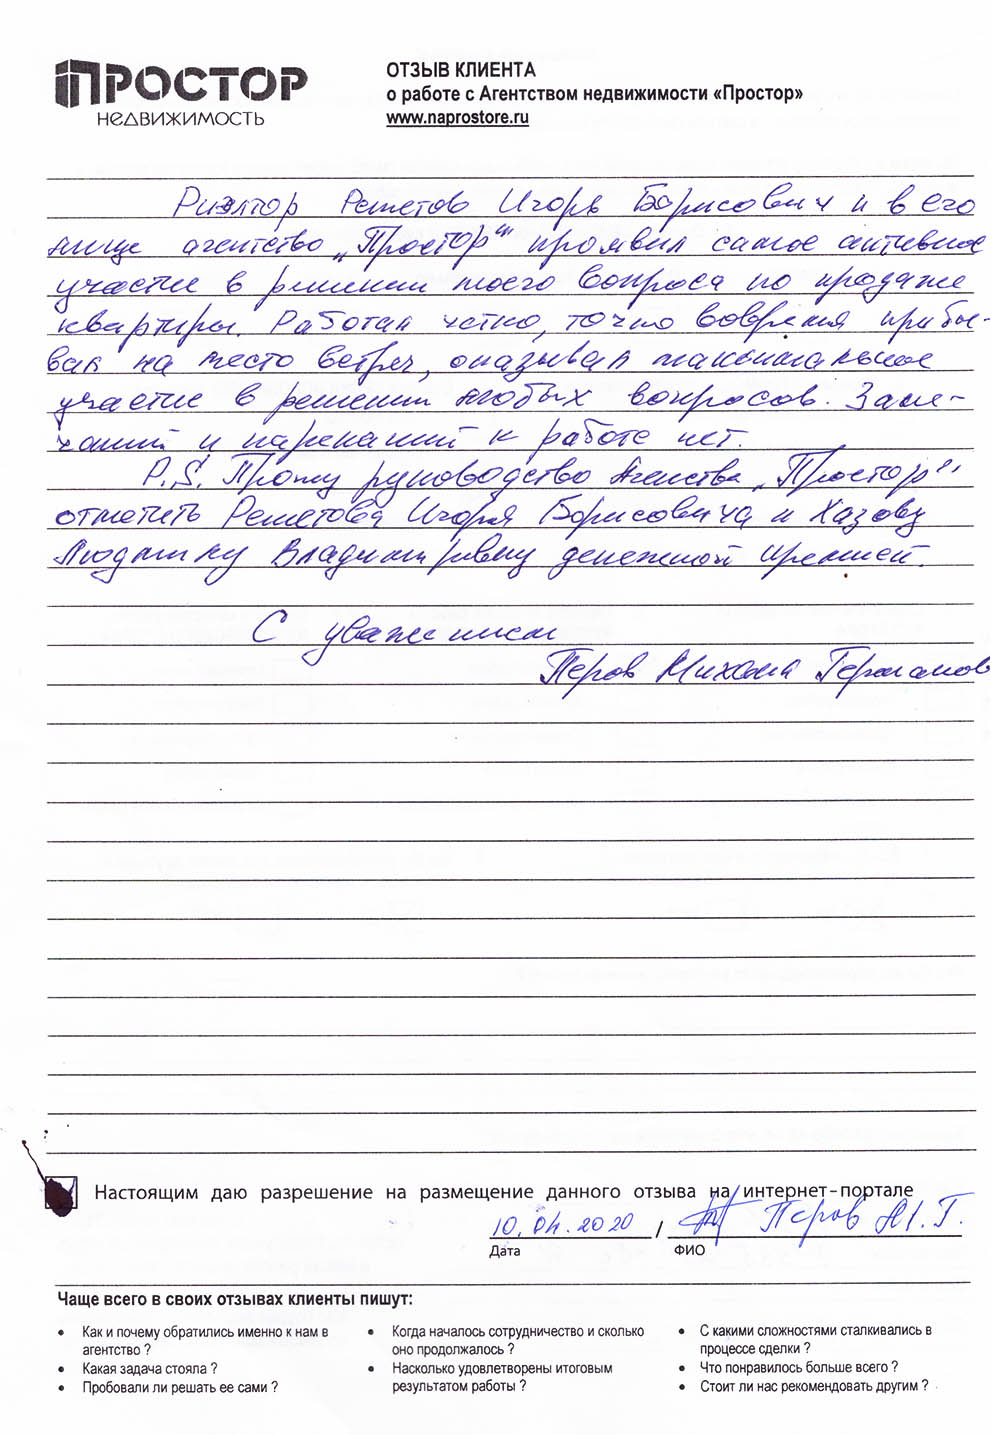 ПРОСТОР
НЕДВИЖИМОСТЬ
ОТЗЫВ КЛИЕНТА
о работе с Агентством недвижимости «Простор»
www.naprostore.ru
Риэлтор Решетов Игорь Борисович и в его
лице агентство „Простор“ проявил самое активное
участие в решении моего вопроса по продаже
квартиры. Работал четко, точно вовремя прибы-
вал на место встреч, оказывал максимальное
участие в решении любых вопросов. Заме-
чаний и нареканий к работе нет.
P.S. Прошу руководство Агенства „Простор“
отметить Решетова Игоря Борисовича и Хазову
Людмилу Владимировну денежной премией.
С уважением
Перов Михаил Германов
Настоящим даю разрешение на размещение данного отзыва на интернет-портале
10.04.2020 / Перов М.Г.
Дата ФИО
Чаще всего в своих отзывах клиенты пишут:
• Как и почему обратились именно к нам в агентство ?
• Какая задача стояла ?
• Пробовали ли решать ее сами ?
• Когда началось сотрудничество и сколько оно продолжалось ?
• Насколько удовлетворены итоговым результатом работы ?
• С какими сложностями сталкивались в процессе сделки ?
• Что понравилось больше всего ?
• Стоит ли нас рекомендовать другим ?